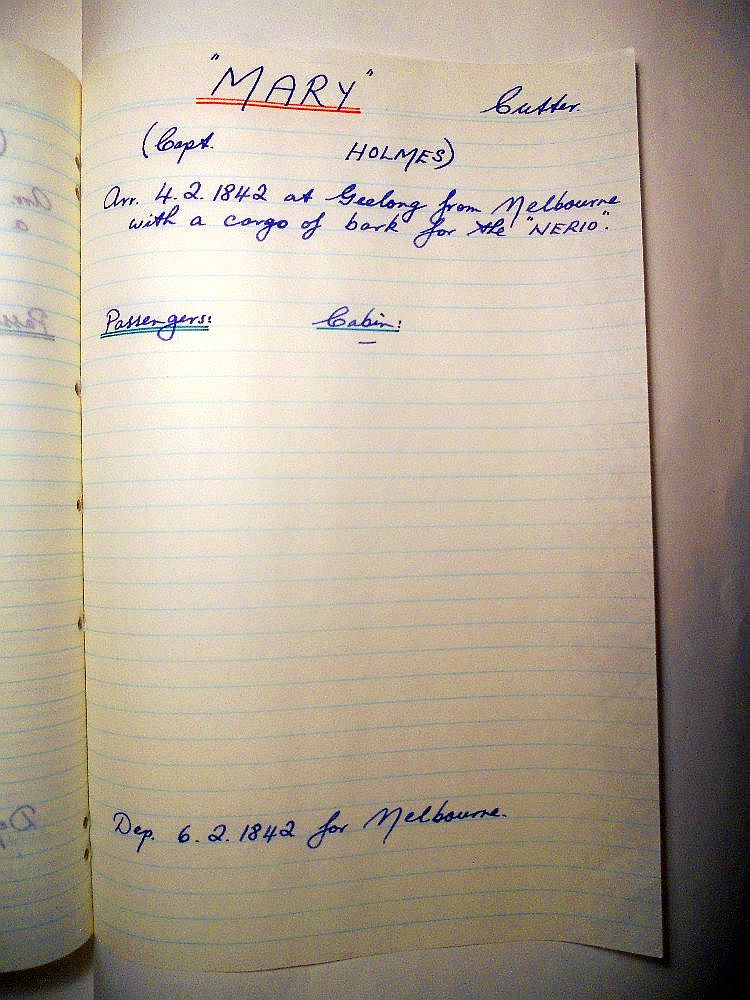 "MARY" Cutter.
(Capt. HOLMES)
Arr. 4.2.1842 at Geelong from Melbourne
with a cargo of bark for the "NERIO".
Passengers: Cabin:
—
Dep. 6.2.1842 for Melbourne.